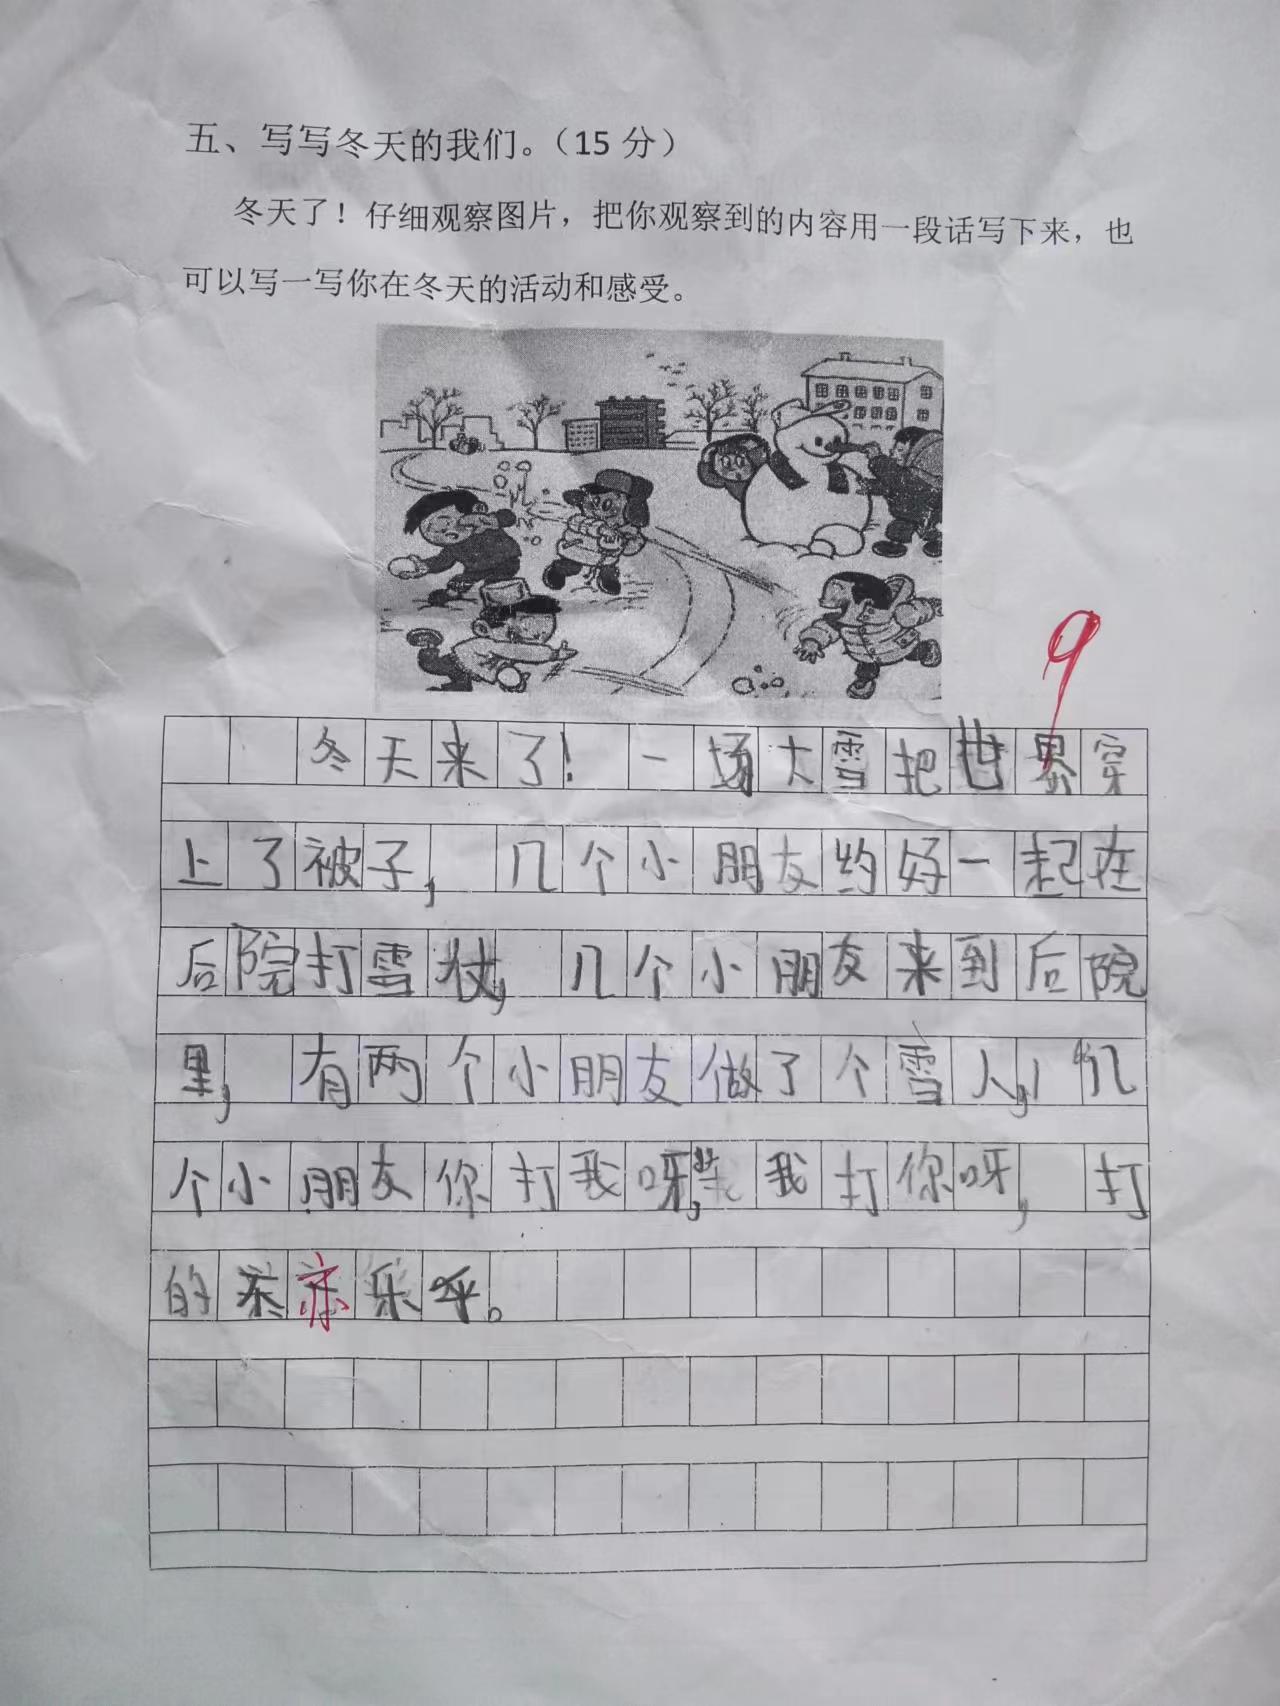 五、写写冬天的我们。（15 分）
冬天了！仔细观察图片，把你观察到的内容用一段话写下来，也
可以写一写你在冬天的活动和感受。
9
冬天来了！一场大雪把世界穿
上了被子，几个小朋友约好一起在
后院打雪仗，几个小朋友来到后院
里，有两个小朋友做了个雪人，几
个小朋友你打我呀，我打你呀，打
的亦乐乎。